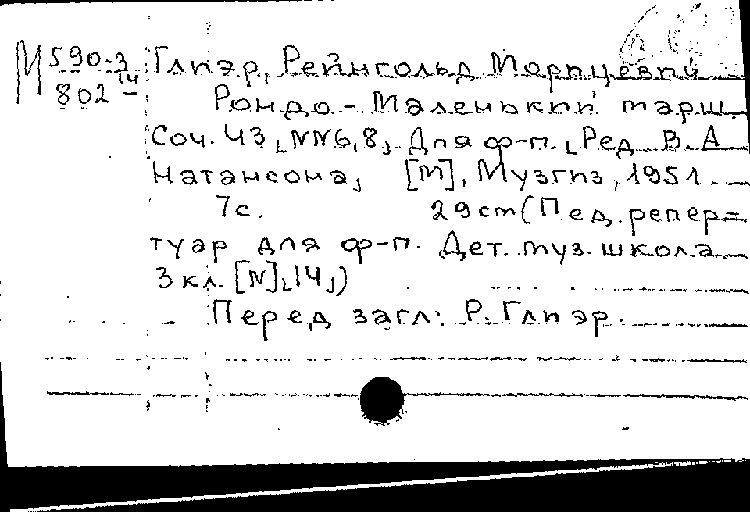 М 590-3/14
802
Глиэр, Рейнгольд Морицевич
Рондо - Маленький марш.
Соч. 43, NN6,8, Для ф-п. Ред. В. А
Натансона, [М], Музгиз, 1951.
7с. 29cm (Пед. репер=
туар для ф-п. Дет. муз. школа
3 кл. [N] 14,)
Перед загл: Р. Глиэр.